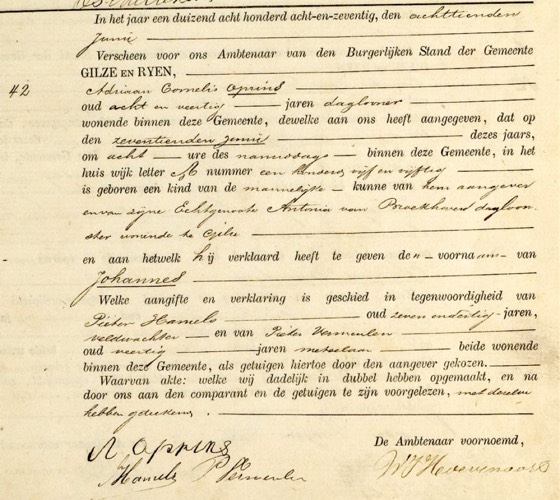 In het jaar een duizend acht honderd acht-en-zeventig, den achttienden
Junij
Verscheen voor ons Ambtenaar van den Burgerlijken Stand der Gemeente
GILZE EN RYEN,
42 Adriaan Cornelis Oprins
oud acht en veertig jaren daglooner
wonende binnen deze Gemeente, dewelke aan ons heeft aangegeven, dat op
den zeventienden Junij dezes jaars,
om acht ure des namiddags binnen deze Gemeente, in het
huis wijk letter nummer een honderd vijf en vijftig
is geboren een kind van de mannelijke kunne van hem aangever
en van zijne Echtgenoote Antonia van Broekhoven dagloon
ster wonende te Gilze
en aan hetwelk hij verklaard heeft te geven den voornaam van
Johannes
Welke aangifte en verklaring is geschied in tegenwoordigheid van
Pieter Hamels oud zeven en dertig jaren,
veldwachter en van Pieter Vermeulen
oud veertig jaren metselaar beide wonende
binnen deze Gemeente, als getuigen hiertoe door den aangever gekozen.
Waarvan akte: welke wij dadelijk in dubbel hebben opgemaakt, en na
door ons aan den comparant en de getuigen te zijn voorgelezen, met dezelve
hebben geteekend.
A Opprins De Ambtenaar voornoemd,
Hamels P Vermeulen